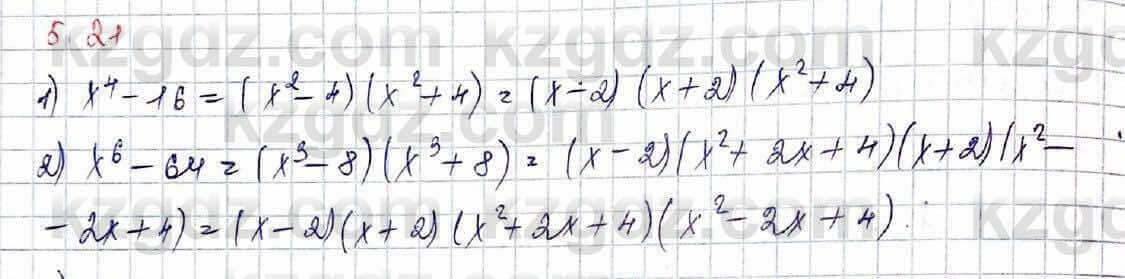 5.21
1) x⁴ - 16 = (x² - 4)(x² + 4) = (x - 2)(x + 2)(x² + 4)
2) x⁶ - 64 = (x³ - 8)(x³ + 8) = (x - 2)(x² + 2x + 4)(x + 2)(x² -
- 2x + 4) = (x - 2)(x + 2)(x² + 2x + 4)(x² - 2x + 4).
kzgdz.com kzgdz.com kzgdz.com
kzgdz.com kzgdz.com
kzgdz.com kzgdz.com kzgdz.com